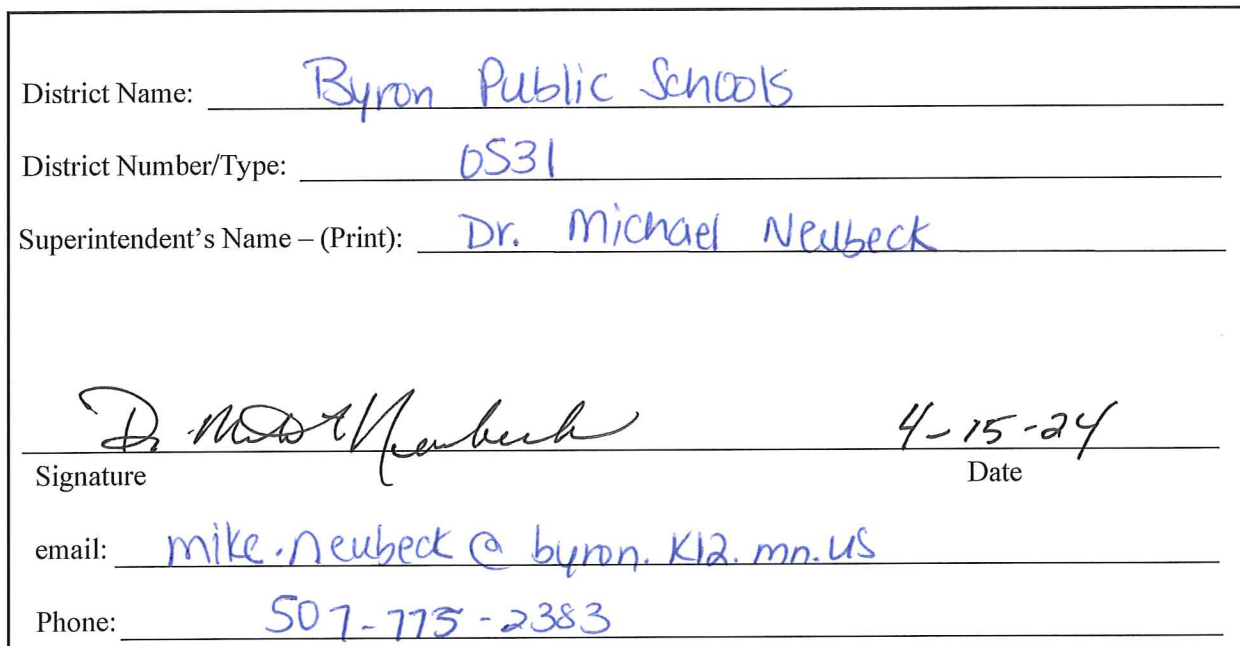 District Name: Byron Public Schools
District Number/Type: 0531
Superintendent's Name – (Print): Dr. Michael Neubeck
Dr. Neubeck 4-15-24
Signature Date
email: mike.neubeck@byron.k12.mn.us
Phone: 507-775-2383